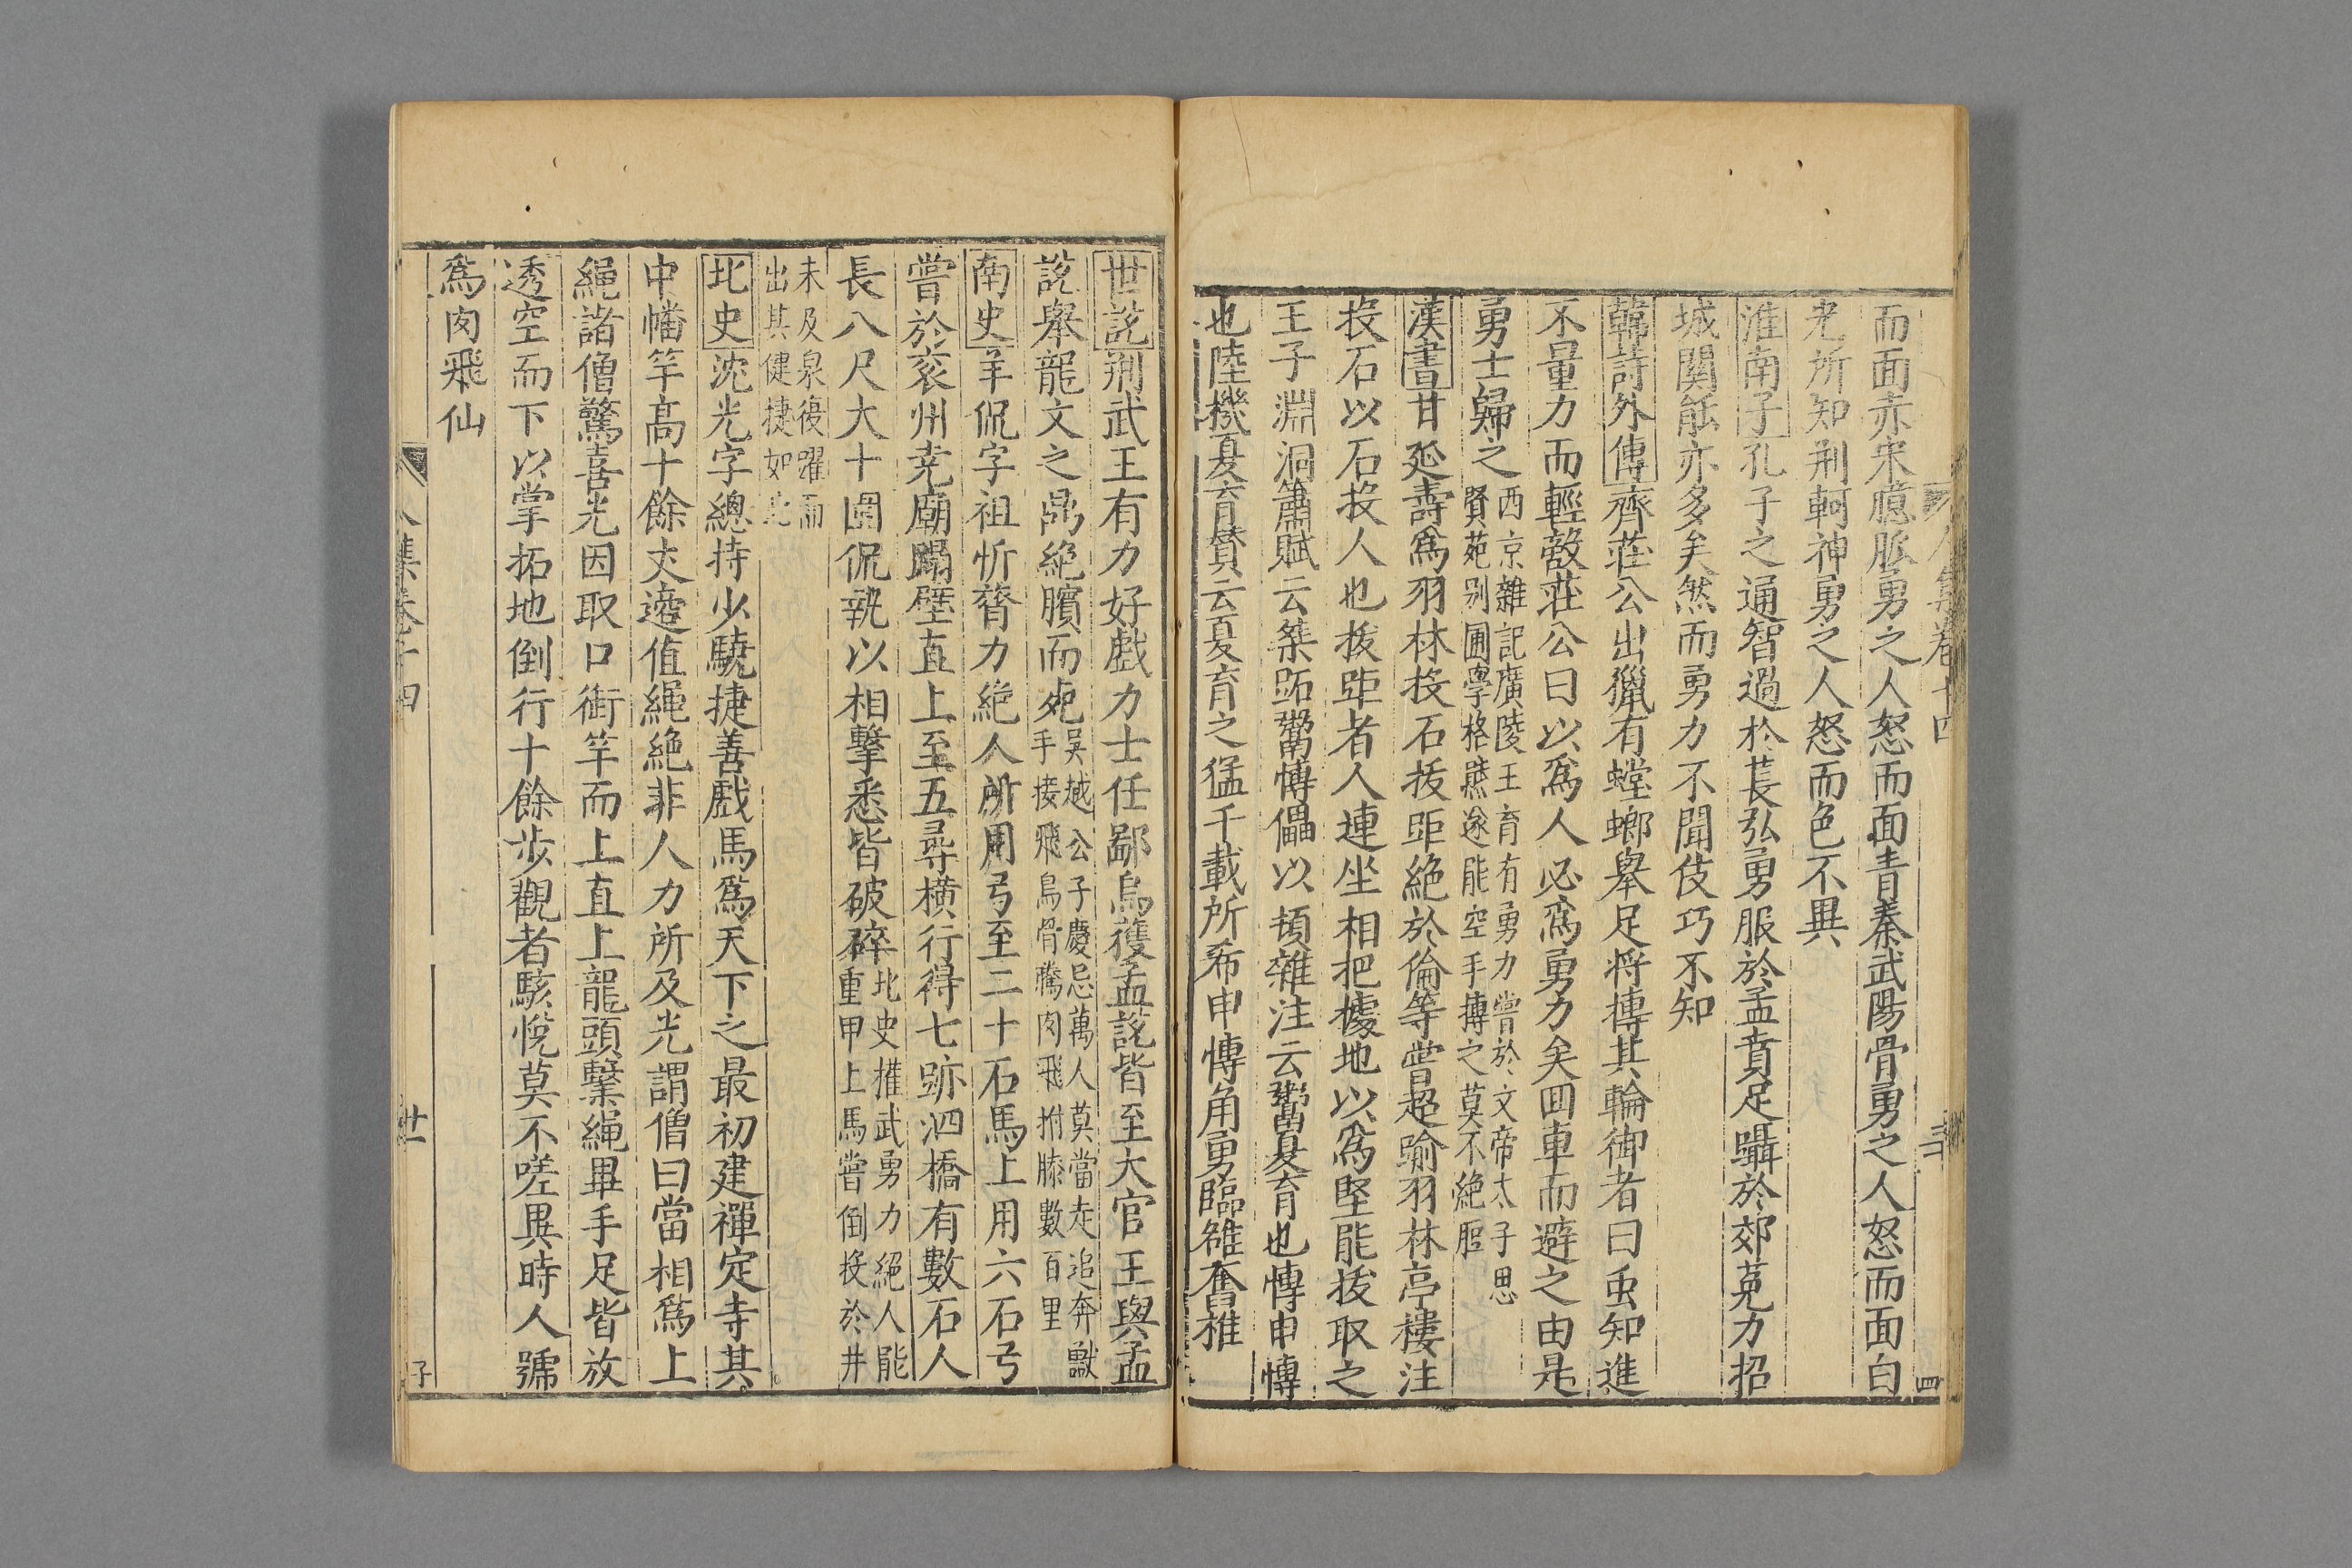 而面赤宋臆脉勇之人怒而面青秦武陽骨勇之人怒而面白
光所知荆軻神勇之人怒而色不異
淮南子孔子之通智過於萇弘勇服於孟賁足躡於郊菟力招
城関能亦多矣然而勇力不聞伎巧不知
韓詩外傳齊莊公出獵有螳螂舉足將搏其輪御者曰虫知進
不量力而輕敵莊公曰以爲人必爲勇力矣回車而避之由是
勇士歸之西京雜記廣陵王胥有勇力嘗於文帝太子思
賢苑别圃學格熊遂能空手搏之莫不絶脰
漢書甘延壽爲羽林投石拔距絶於倫等嘗超踰羽林亭樓注
投石以石投人也拔距者人連坐相把據地以爲堅能拔取之
王子淵洞簫賦云桀跖鬻慱儡以頓雜注云鬻夏育也慱申慱
也陸機夏育贊云夏育之猛千載所希申慱角勇臨雒奮椎
世說荊武王有力好戲力士任鄙烏獲孟說皆至大官王與孟
說舉龍文之鼎絶臏而死吳越公子慶忌萬人莫當走追奔獸
手接飛鳥骨騰肉飛拊膝數百里
南史羊侃字祖忻膂力絶人所用弓至二十石馬上用六石弓
嘗於兖州尭廟蹋壁直上至五尋橫行得七跡泗橋有數石人
長八尺大十圍侃執以相擊悉皆破碎北史摧武勇力絶人能
重甲上馬嘗倒投於井
未及泉復躍而
出其健捷如此
北史沈光字總持少驍捷善戲馬爲天下之最初建禪定寺其
中幡竿高十餘丈遶值繩絶非人力所及光謂僧曰當相爲上
繩諸僧驚喜光因取口銜竿而上直上龍頭繫繩畢手足皆放
透空而下以掌拓地倒行十餘步觀者駭悅莫不嗟異時人號
爲肉飛仙
集卷十四
廿一
子